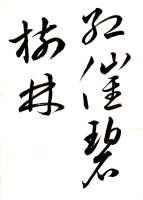 红催碧
树林